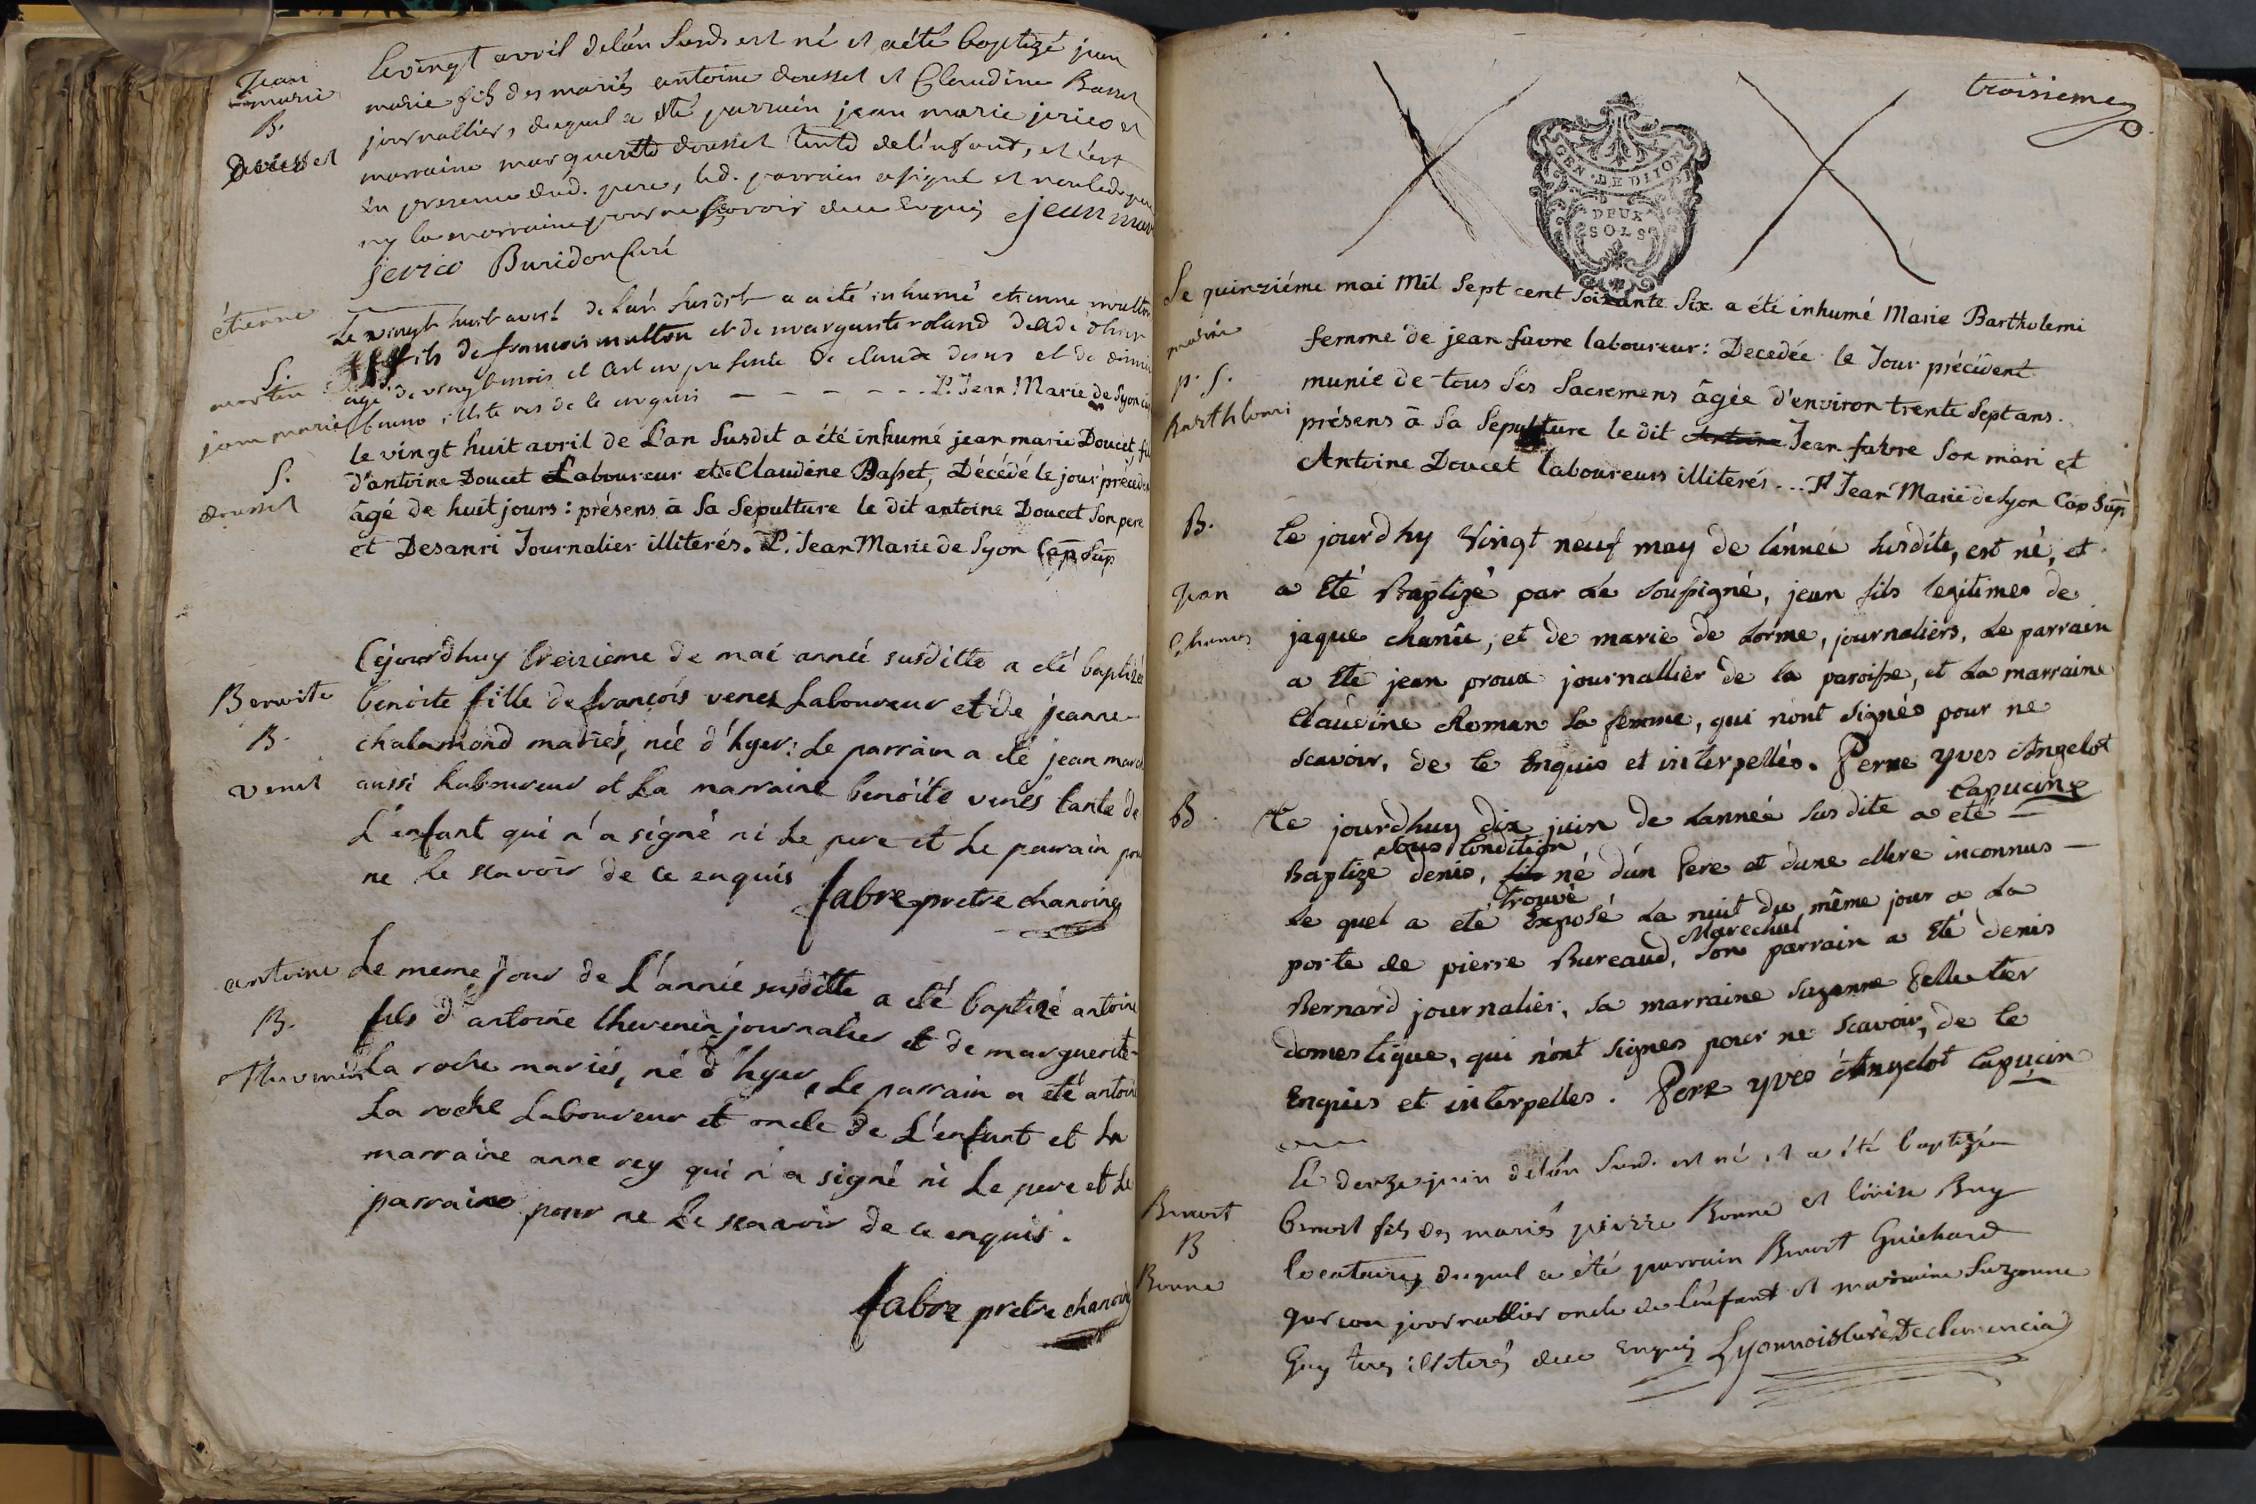 Jean
marie
B.
Dousset
le vingt avril de l'an Susd. est né et a été baptizé jean
marie fils des mariés antoine dousset et Claudine Basset
journallier, duquel a été parrain jean marie jerico et
marraine marguerite dousset tante de l'enfant, et c'est
en presence dud. pere, led. parrain a signé et non led. pere
ny la marraine pour ne sçavoir de ce enquis jean mar
jerico Buridon Curé
étienne
S.
Le vingt huit avril de l'an susdit a été inhumé etienne multon
fils de francois multon et de marguerite roland
agé de vingt &
illiteres de ce enquis - - - - - - P. Jean Marie de Lyon
jean marie
S.
dousset
le vingt huit avril de L'an Susdit a été inhumé jean marie Doucet, fil
d'antoine Doucet Laboureur et de Claudine Basset, Décédé le jour préceden
âgé de huit jours : présens à Sa Sepulture le dit antoine Doucet Son pere
et Desanri Journalier illiterés. P. Jean Marie de Lyon Cap. Sup
Benoite
B.
venet
Cejourd'huy treizieme de mai année susditte a été baptizée
benoite fille de françois venet Laboureur et de jeanne
chalamond mariés, née d'hyer : Le parrain a été jean marc
aussi Laboureur et La marraine benoîte venet tante de
L'enfant qui n'a signé ni Le pere et Le parrain pour
ne le scavoir de ce enquis
fabre pretre chanoine
antoine
B.
Thevenin
Le meme jour de L'année susditte a été baptizé antoine
fils d'antoine thevenin journalier et de marguerite
La roche mariés, né d'hyer, Le parrain a été antoine
La roche Laboureur et oncle de L'enfant et La
marraine anne rey qui n'a signé ni Le pere et Le
parraine pour ne Le scavoir de ce enquis.
fabre pretre chanoine
troisieme
GEN. DE DIJON
DEUX
SOLS
marie
p. S.
Barthlomi
Le quinziéme mai Mil Sept cent Soixante Six a été inhumé Marie Bartholemi
femme de jean favre laboureur : Decedée le Jour précédent
munie de tous Ses Sacremens âgée d'environ trente Sept ans.
présens à Sa Sepulture le dit Antoine Jean fabre Son mari et
Antoine Doucet laboureurs illiterés... P. Jean Marie de Lyon Cap Sup
B.
Jean
Le jourdhy Vingt neuf may de l'année susdite, est né, et
a Eté Baptizé par Le soussigné, jean fils legitimes de
jaque chanîe, et de marie de Lorme, journaliers, Le parrain
a Eté jean proux journallier de la paroisse, et La marraine
Claudine Roman Sa femme, qui n'ont signés pour ne
scavoir, de ce Enquis et interpellés. Perre Yves Angelot
Capucin
B.
Ce jourdhuy dix juin de Lanneé Susdite a eté
sous Condition
Baptizé denis, fils né d'un Pere et d'une Mere inconnus —
trouvé
Le quel a eté Exposé La nuit du même jour a La
Marechal
porte de pierre Bureaud, Son parrain a Eté denis
Bernard journalier, sa marraine suzanne Pelletier
domestique, qui n'ont signes pour ne scavoir, de ce
Enquis et interpelles. Pere Yves Angelot Capucin
Benoit
B
Bonne
Le douze juin de l'an Susd. est né et a été baptizé
benoit fils des mariés pierre Bonne et loüise Buy
locataires, duquel a été parrain Benoit Guichard
garçon journallier oncle de l'enfant et marraine Suzanne
Guy tous illiterés de ce Enquis Lyonnois Curé De clemencia